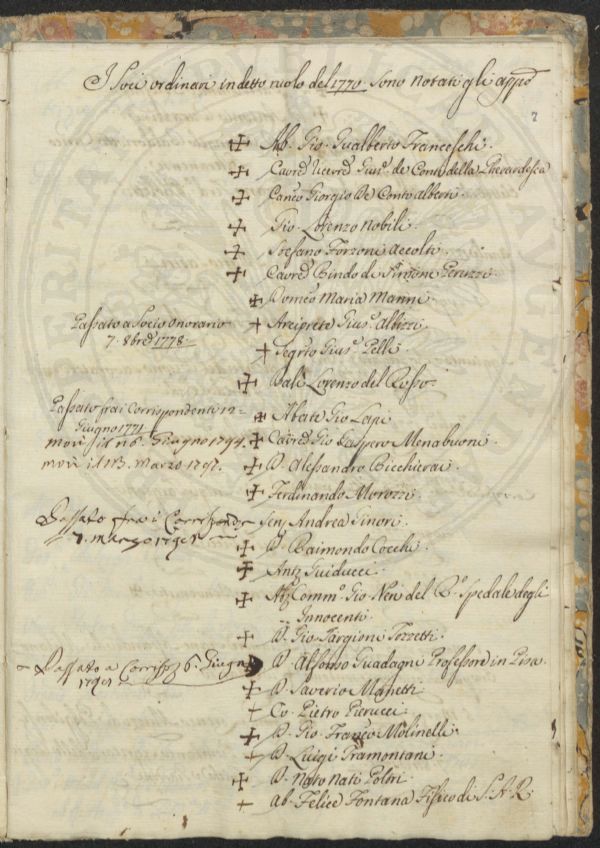 I Soci ordinari in detto ruolo del 1770. sono notati gli appo
7
Ab. Gio. Gualberto Franceschi.
Cav.re Giu.e de Conti della Gherardesca
Can.co Giorgio De Conti Alberti.
Gio. Lorenzo Nobili.
Stefano Forzoni Accolti.
Cav.re Bindo de Simone Peruzzi.
Domen.co Maria Manni.
Passato a Socio Onorario
Arciprete Gius.e Albizzi.
7. 8bre 1778.
Segr.io Gius.e Pelli.
Balì Lorenzo del Rosso.
Passato frai Corrispondenti 12
Giugno 1771
Abate Gio. Lapi.
morì il 16. Giugno 1794.
Cav.re Gio. Gaspero Menabuoni.
morì il 13. Marzo 1797.
D. Alessandro Bicchierai.
Ferdinando Morozzi.
Passato fra i Corrispond
Sen. Andrea Ginori.
7. Marzo 1791
D. Raimondo Cocchi.
Ant. Guiducci.
Comm.o Gio. Neri del R.o Spedale degli
Innocenti.
D. Gio. Targioni Tozzetti.
Passato a Corrisp. 6. Giugno
D. Alfonso Guadagni Professore in Pisa.
D. Saverio Manetti.
Co. Pietro Pierucci.
D. Gio. Fran.co Molinelli.
D. Luigi Tramontani.
D. Nato Nati Poltri.
Ab. Felice Fontana Fisico di S.A.R.